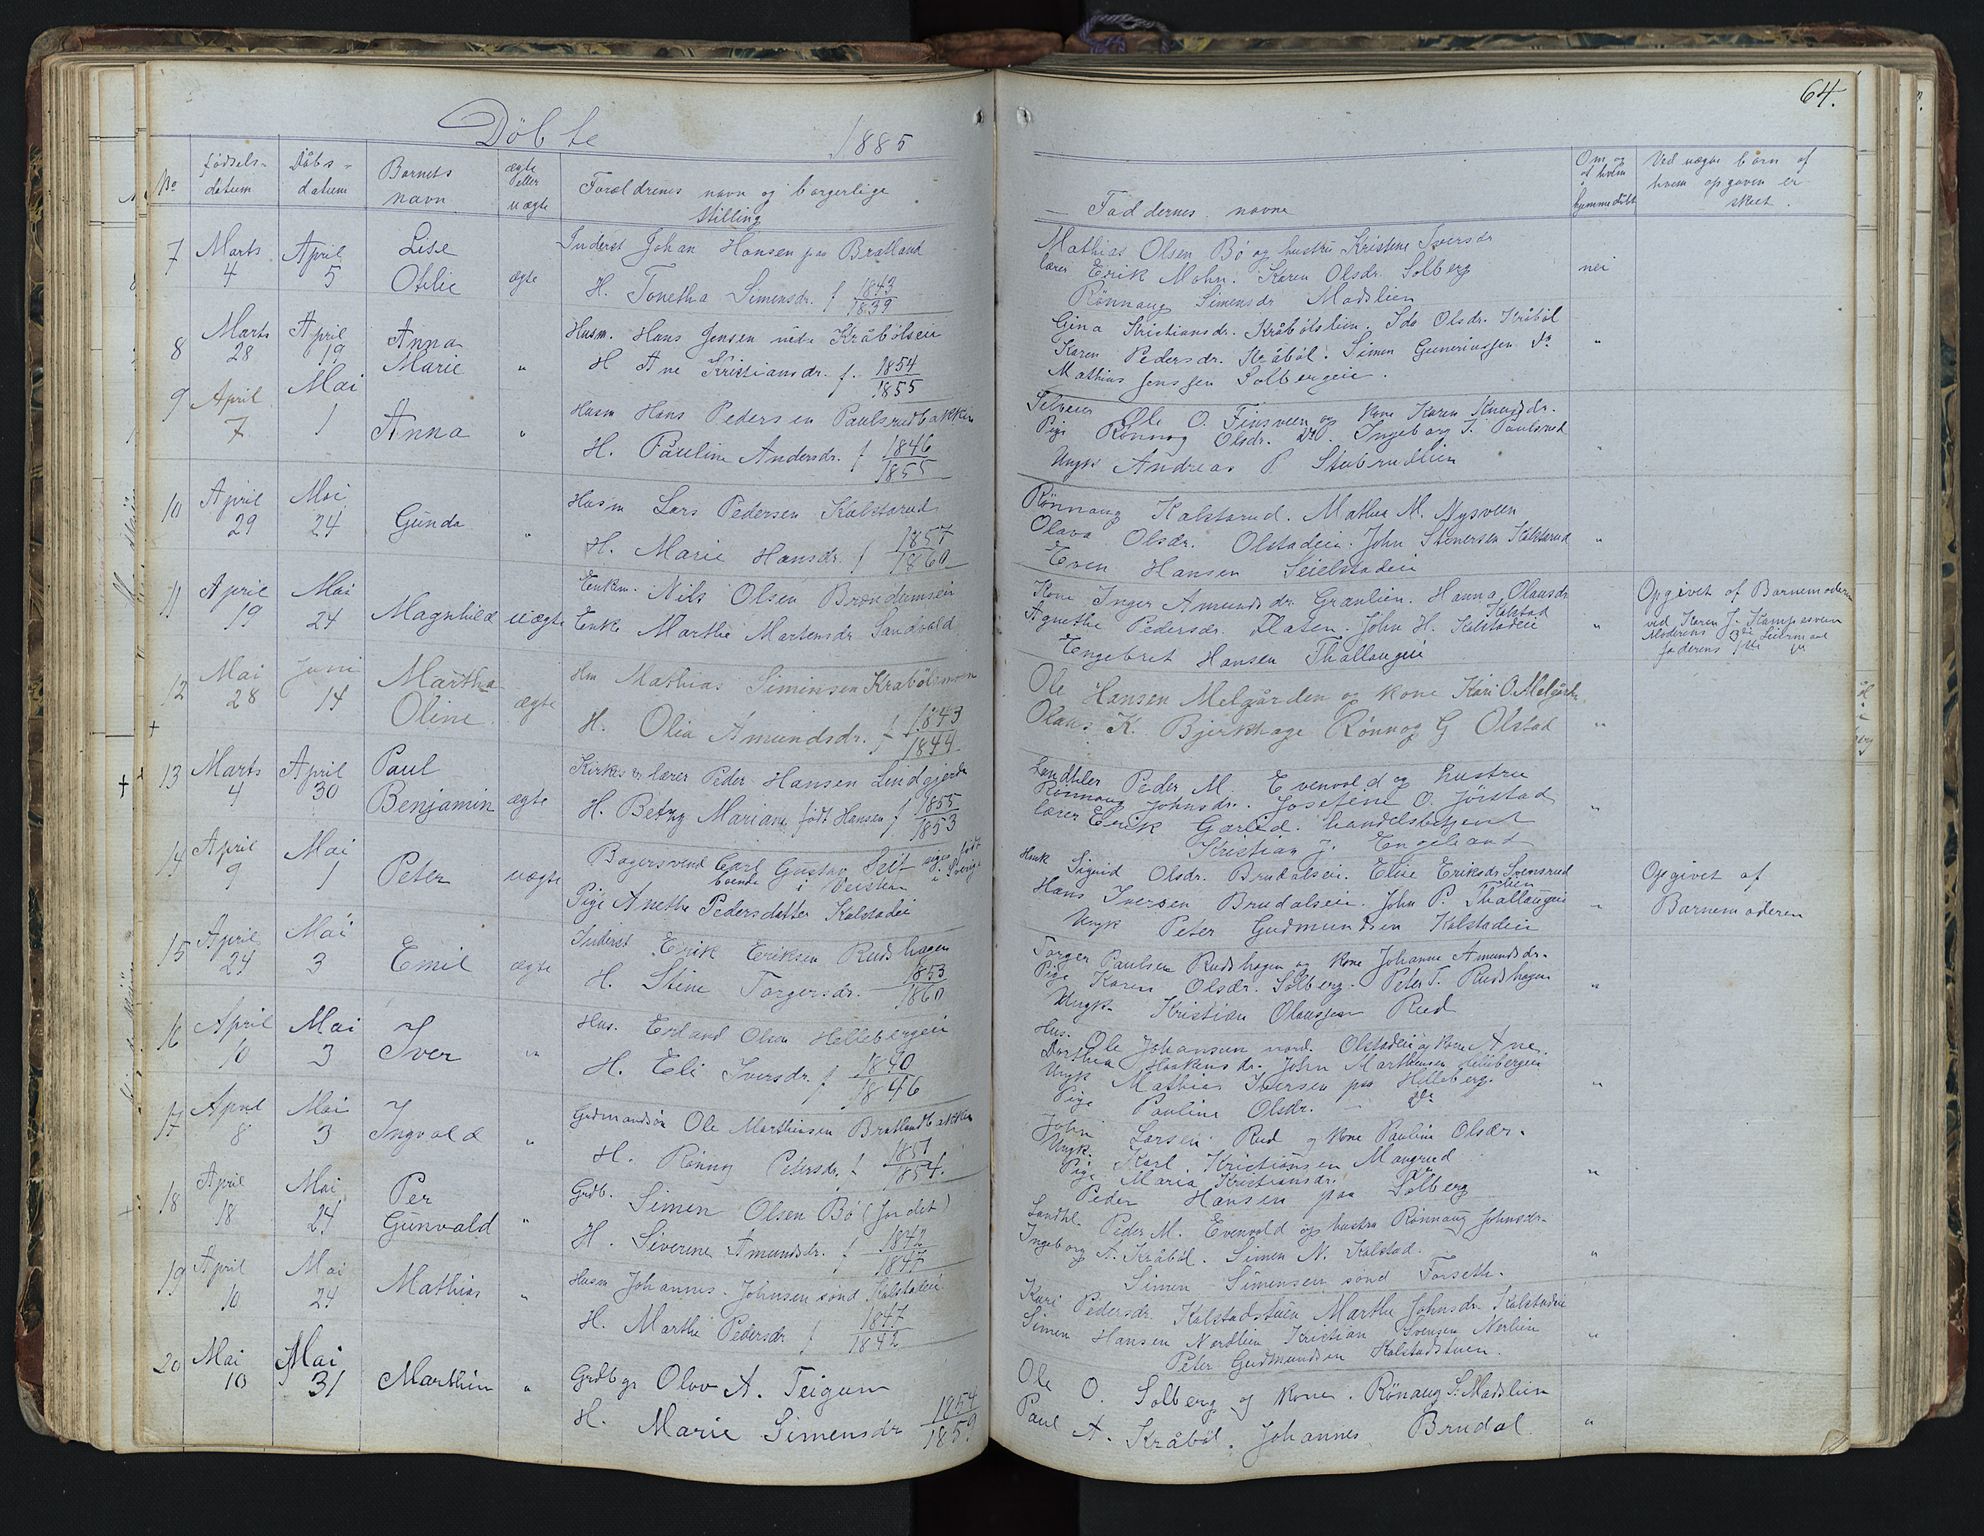 Döbte 1885
No
födsels-
datum
Dåbs-
datum
Barnets
navn
ægte
eller
uægte
Forældrenes navn og borgerlige
Stilling
7 Marts April Lise Inderst Johan Hansen paa Bratland
4 5 Otilie ægte H. Tonetha Simensdr. f 1843
1839
8 Marts April Anna Husm. Hans Jensen Kråbölseie
28 19 Marie " H Ane Kristiansdr. f. 1854
1855
9 April Mai Husm Hans Pedersen Paulsrudbakken
7 1 Anna " H. Pauline Andersdr. f 1846
1855
10 April Mai Husm Lars Pedersen Kalstarud
29 24 Gunda " H. Marie Hansdr. f 1857
1860
11 April Mai Enkem. Nils Olsen
19 24 Magnhild uægte Enke Marthe Martensdr Sandvold
12 Mai Juni Martha Hm Mathias Simensen
28 14 Oline ægte H. Olia Amundsdr. f 1843
1844
13 Marts April Paul Kirkes. lærer Peder Hansen Lindgjerde
4 30 Benjamin ægte H. Betzy Mariane født Hansen f 1855
1853
14 April Mai Bagersvend Carl Gustav Selt siges født
9 1 Peter uægte boende i i Sverige
Pige Anethe Pedersdatter Kalstadeie
15 April Mai Inderst Erik Eriksen Rudshagen
24 3 Emil ægte H. Stine Torgersdr. 1853
1860
16 April Mai Hus. Erland Olsen Hellebergeie
10 3 Iver " H. Eli Iversdr. f 1840
1846
17 April Mai Grdmandsön Ole Marthinsen Bratlandbakken
8 3 Ingvald " H. Rönnog Pedersdr. f 1851
1854.
18 April Mai Per Grdb. Simen Olsen Bö (fordet)
18 24 Gunvald " H. Siverine Amundsdr. f 1842
1847
19 April Mai Husm Johannes Johnsen sönd Kalstadeie
10 24 Mathias " H. Marthe Pedersdr f 1847
1842
20 Mai Mai Grdbgr Olov A. Teigum
10 31 Marthin " H. Marie Simensdr 1854
1859
64.
Faddernes navne
Om og
af hvem
hjemmedöbt
Ved uægte börn af
hvem opgaven er
skeet.
Mathias Olsen Bö og hustru Kristine Iversdr
lærer Erik Mohn. Karen Olsdr. Solberg nei
Rönnaug Simensdr Madslien
Gina Kristiansdr. Kråbölslien. Ida Olsdr. Kråböl
Karen Pedersdr. Kråböl. Simen Gunerius­sen do "
Mathias Jenssen Solbergeie.
Selveier Ole O. Finsveen og kone Karen Knudsdr.
Pige Rönnog Olsdr. do. Ingeborg S. Paulsrud
Ungk Andreas P Stubrudlien "
Rönnaug Kalstarud. Mathea M. Nysveen
Olava Olsdr. Olstadeie. John Stenersen Kalstarud "
Even Hansen Seielstadeie
Kone Inger Amundsdr. Granlien. Hanna Olausdr
Kalstad
Agnethe Pedersdr. Flaten. John H. Kalstadeie "
Engebret Hansen Thallaugeie
Opgivet af Barnemoderen
ved Karen J. Kampesveen
Moderens 3die Leiermaal
faderens 1ste
Ole Hansen Melgården og kone Kari O. Melgården
Olaus K. Bjerkhage Rönnog G Olstad "
Landhler Peder M. Evenvold og hustru
Rönnaug Johnsdr. Josefine O. Jörstad
lærer Erik Garlid. handelsbetjent "
Kristian J. Engeland
Sigrid Olsdr. Brudalseie. Elise Eriksdr Svensrud
lien
Hans Iversen Brudalseie. John P. Thallaugeie "
Ungk Peter Gudmundsen Kalstadeie
Opgivet af
Barnemoderen
Torger Paulsen Rudshagen og kone Johanne Amundsdr.
Pige Karen Olsdr. Solberg. Peter T. Rudshagen "
Ungk. Kristian Olaussen Rud
Hus. Ole Johansen nord. Olstadeie og kone Ane
Dorthea Haakensdr. John Marthinsen Hellebergeie
Ungk Mathias Iversen paa Helleberg. "
Pige Pauline Olsdr. — do
John Larsen Rud og kone Pauline Olsdr.
Ungk. Karl Kristiansen Maugrud
Pige Maria Kristiansdr. do "
Peder Hansen paa Solberg
Landhl. Peder M. Evenvold og hustru Rönnaug Johnsdr.
Ingeborg A. Kråböl. Simen N. Kalstad. "
Simen Simensen sönd Forseth.
Kari Pedersdr. Kalstadstuen Marthe Johnsdr Kalstadeie
Simen Hansen Nordlien Kristian Svensen Nerlien "
Peter Gudmundsen Kalstadstuen.
Ole O. Solberg og kone. Rönaug S. Madslien
Paul A. Kråböl. Johannes Brudal. "